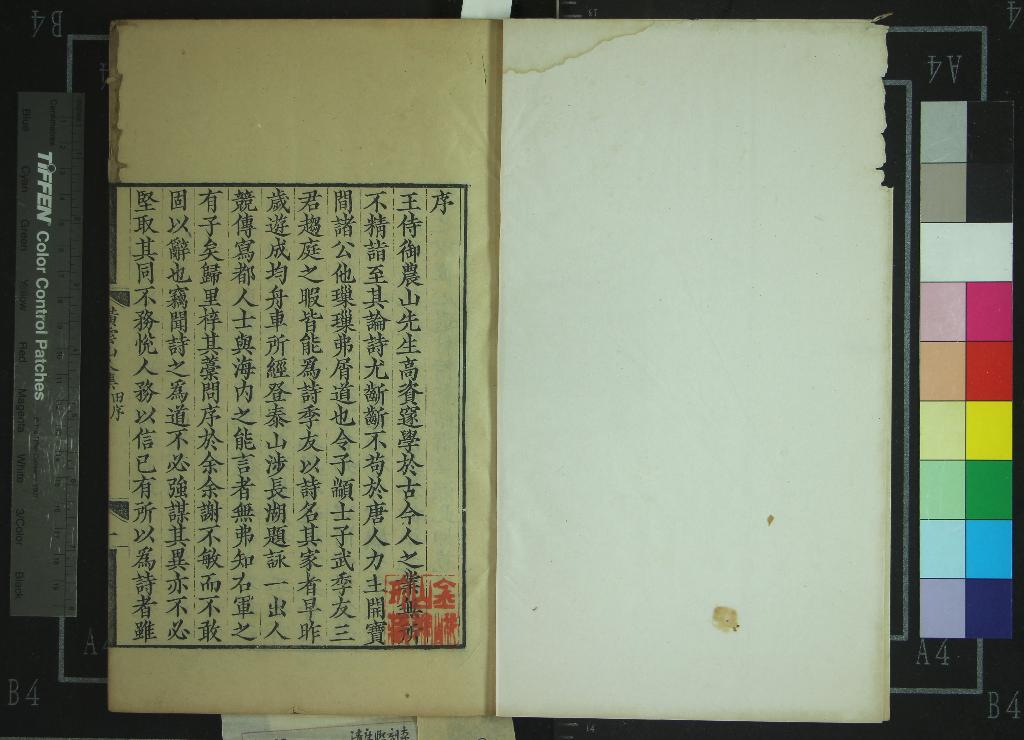 序
王侍御農山先生高資邃學於古今人之業無所
不精詣至其論詩尤齗齗不苟於唐人力主開寶
間諸公他璅璅弗屑道也令子顓士子武季友三
君趨庭之暇皆能爲詩季友以詩名其家者早昨
歲遊成均舟車所經登泰山涉長湖題詠一出人
競傳寫都人士與海內之能言者無弗知右軍之
有子矣歸里梓其藁問序於余余謝不敏而不敢
固以辭也竊聞詩之爲道不必強謀其異亦不必
堅取其同不務悅人務以信已有所以爲詩者雖
田序
TIFFEN Color Control Patches
Blue
Cyan
Green
Yellow
Red
Magenta
White
3/Color
Black
Centimetres
B4
A4
A4
B4
A4
A4
B4
13
14